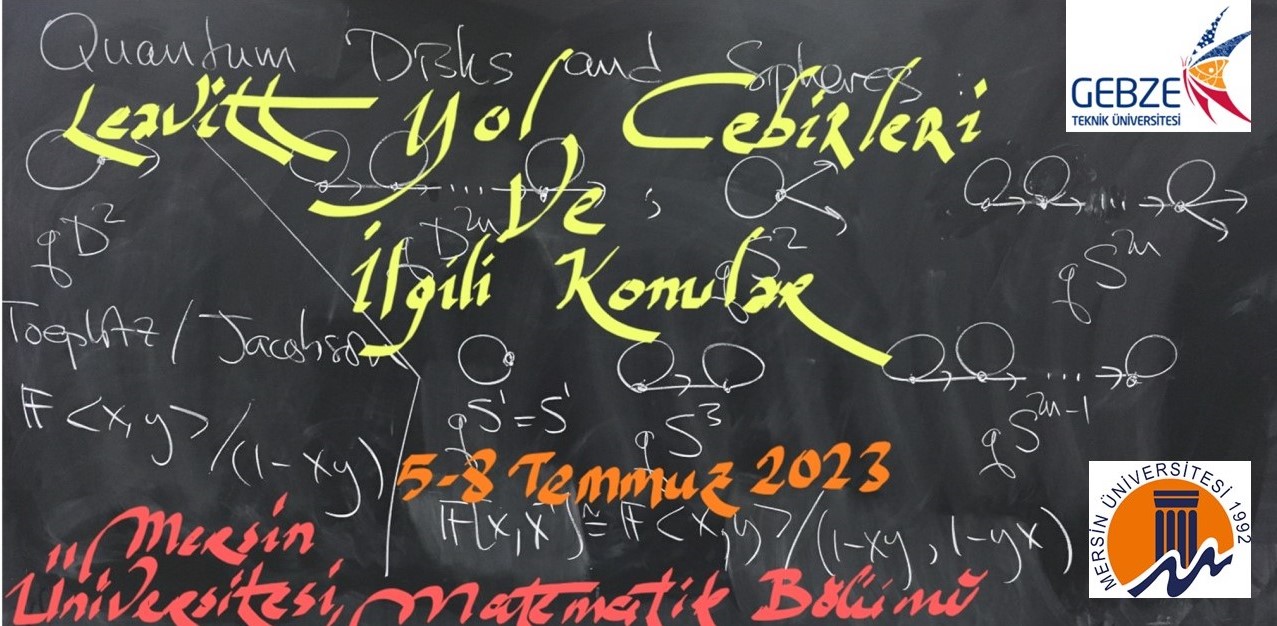 Quantum Disks and Spheres :
Leavitt Yol Cebirleri
Ve
İlgili Konular
GEBZE
TEKNİK ÜNİVERSİTESİ
qD² qD²ⁿ ; qS² qS²ⁿ
Toeplitz / Jacobson
𝔽<x,y>/(1-xy)
qS¹=S¹ qS³ qS²ⁿ⁻¹
5-8 Temmuz 2023
𝔽[x,x⁻¹]≅𝔽<x,y>/(1-xy, 1-yx)
Mersin
Üniversitesi, Matematik Bölümü
MERSİN ÜNİVERSİTESİ 1992